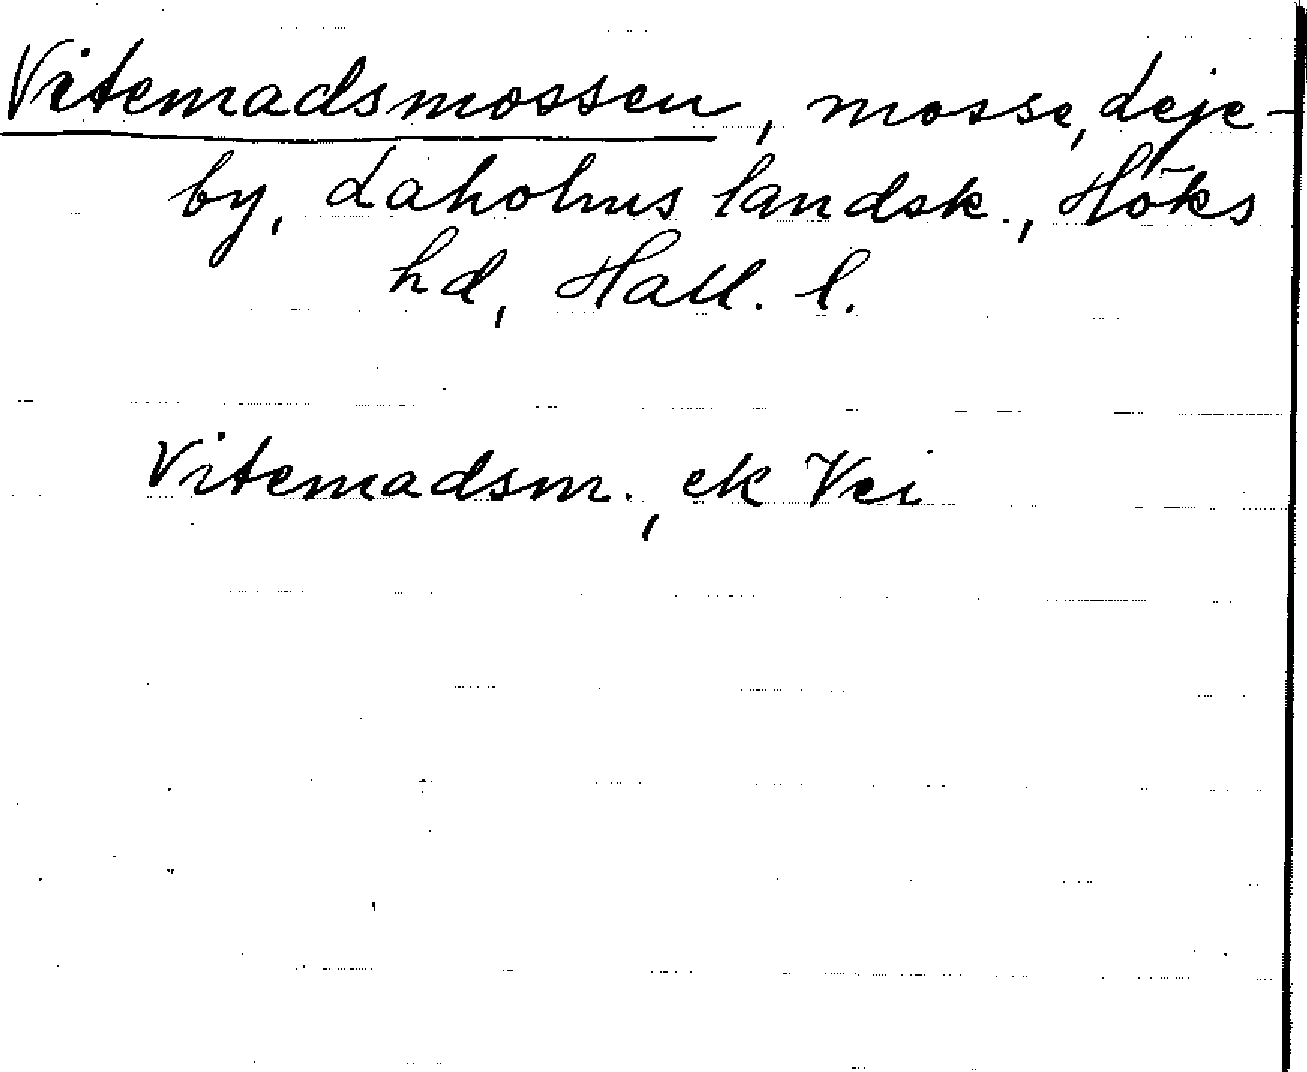 Vitemadsmossen, mosse, Leje-
by, Laholms landsk., Höks
hd, Hall. l.
Vitemadsm., ek Vei